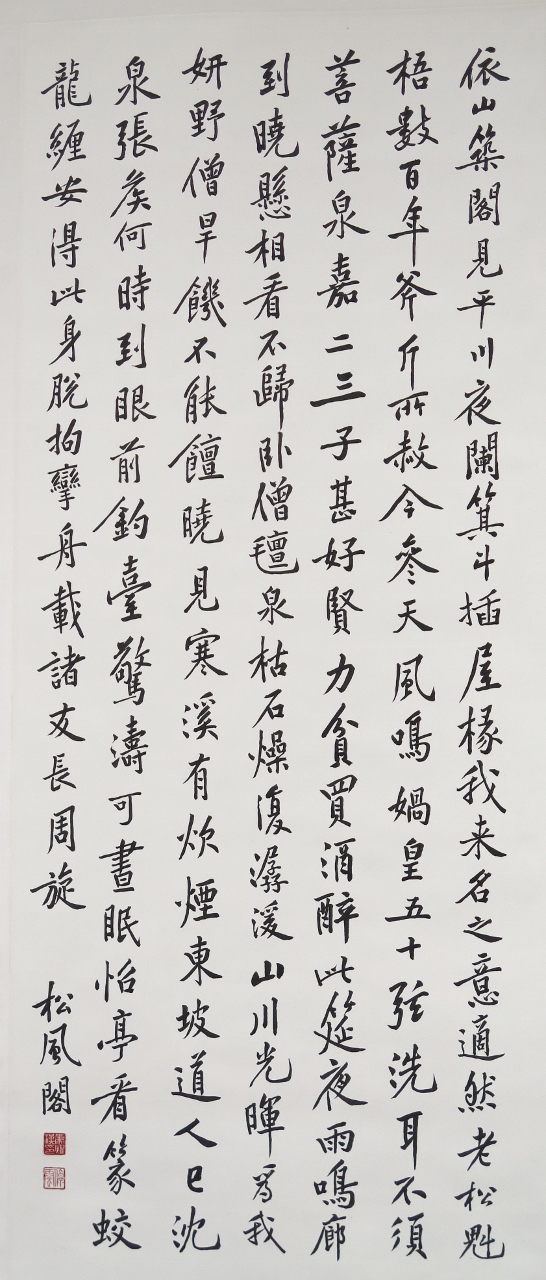 依山築閣見平川夜闌箕斗插屋椽我来名之意適然老松魁
梧數百年斧斤所赦今參天風鳴媧皇五十弦洗耳不須
菩薩泉嘉二三子甚好賢力貧買酒醉此筵夜雨鳴廊
到曉懸相看不歸卧僧氊泉枯石燥復潺湲山川光暉爲我
妍野僧旱饑不能饘曉見寒溪有炊煙東坡道人已沈
泉張矦何時到眼前釣臺驚濤可晝眠怡亭看篆蛟
龍纏安得此身脫拘攣舟載諸友長周旋
松風閣